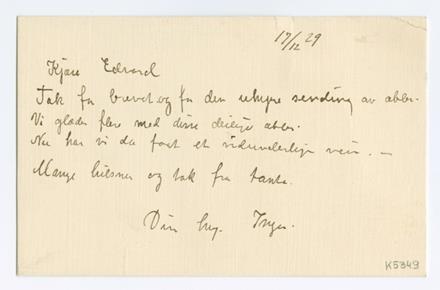 17/12 29
Kjære Edvard
Tak for brevet og for den uhyre sending av æbler.
Vi glæder flere med disse deilige æbler.
Nu har vi da faat et vidunderlige veir. —
Mange hilsner og tak fra tante.
Din hng. Inger.
K5349